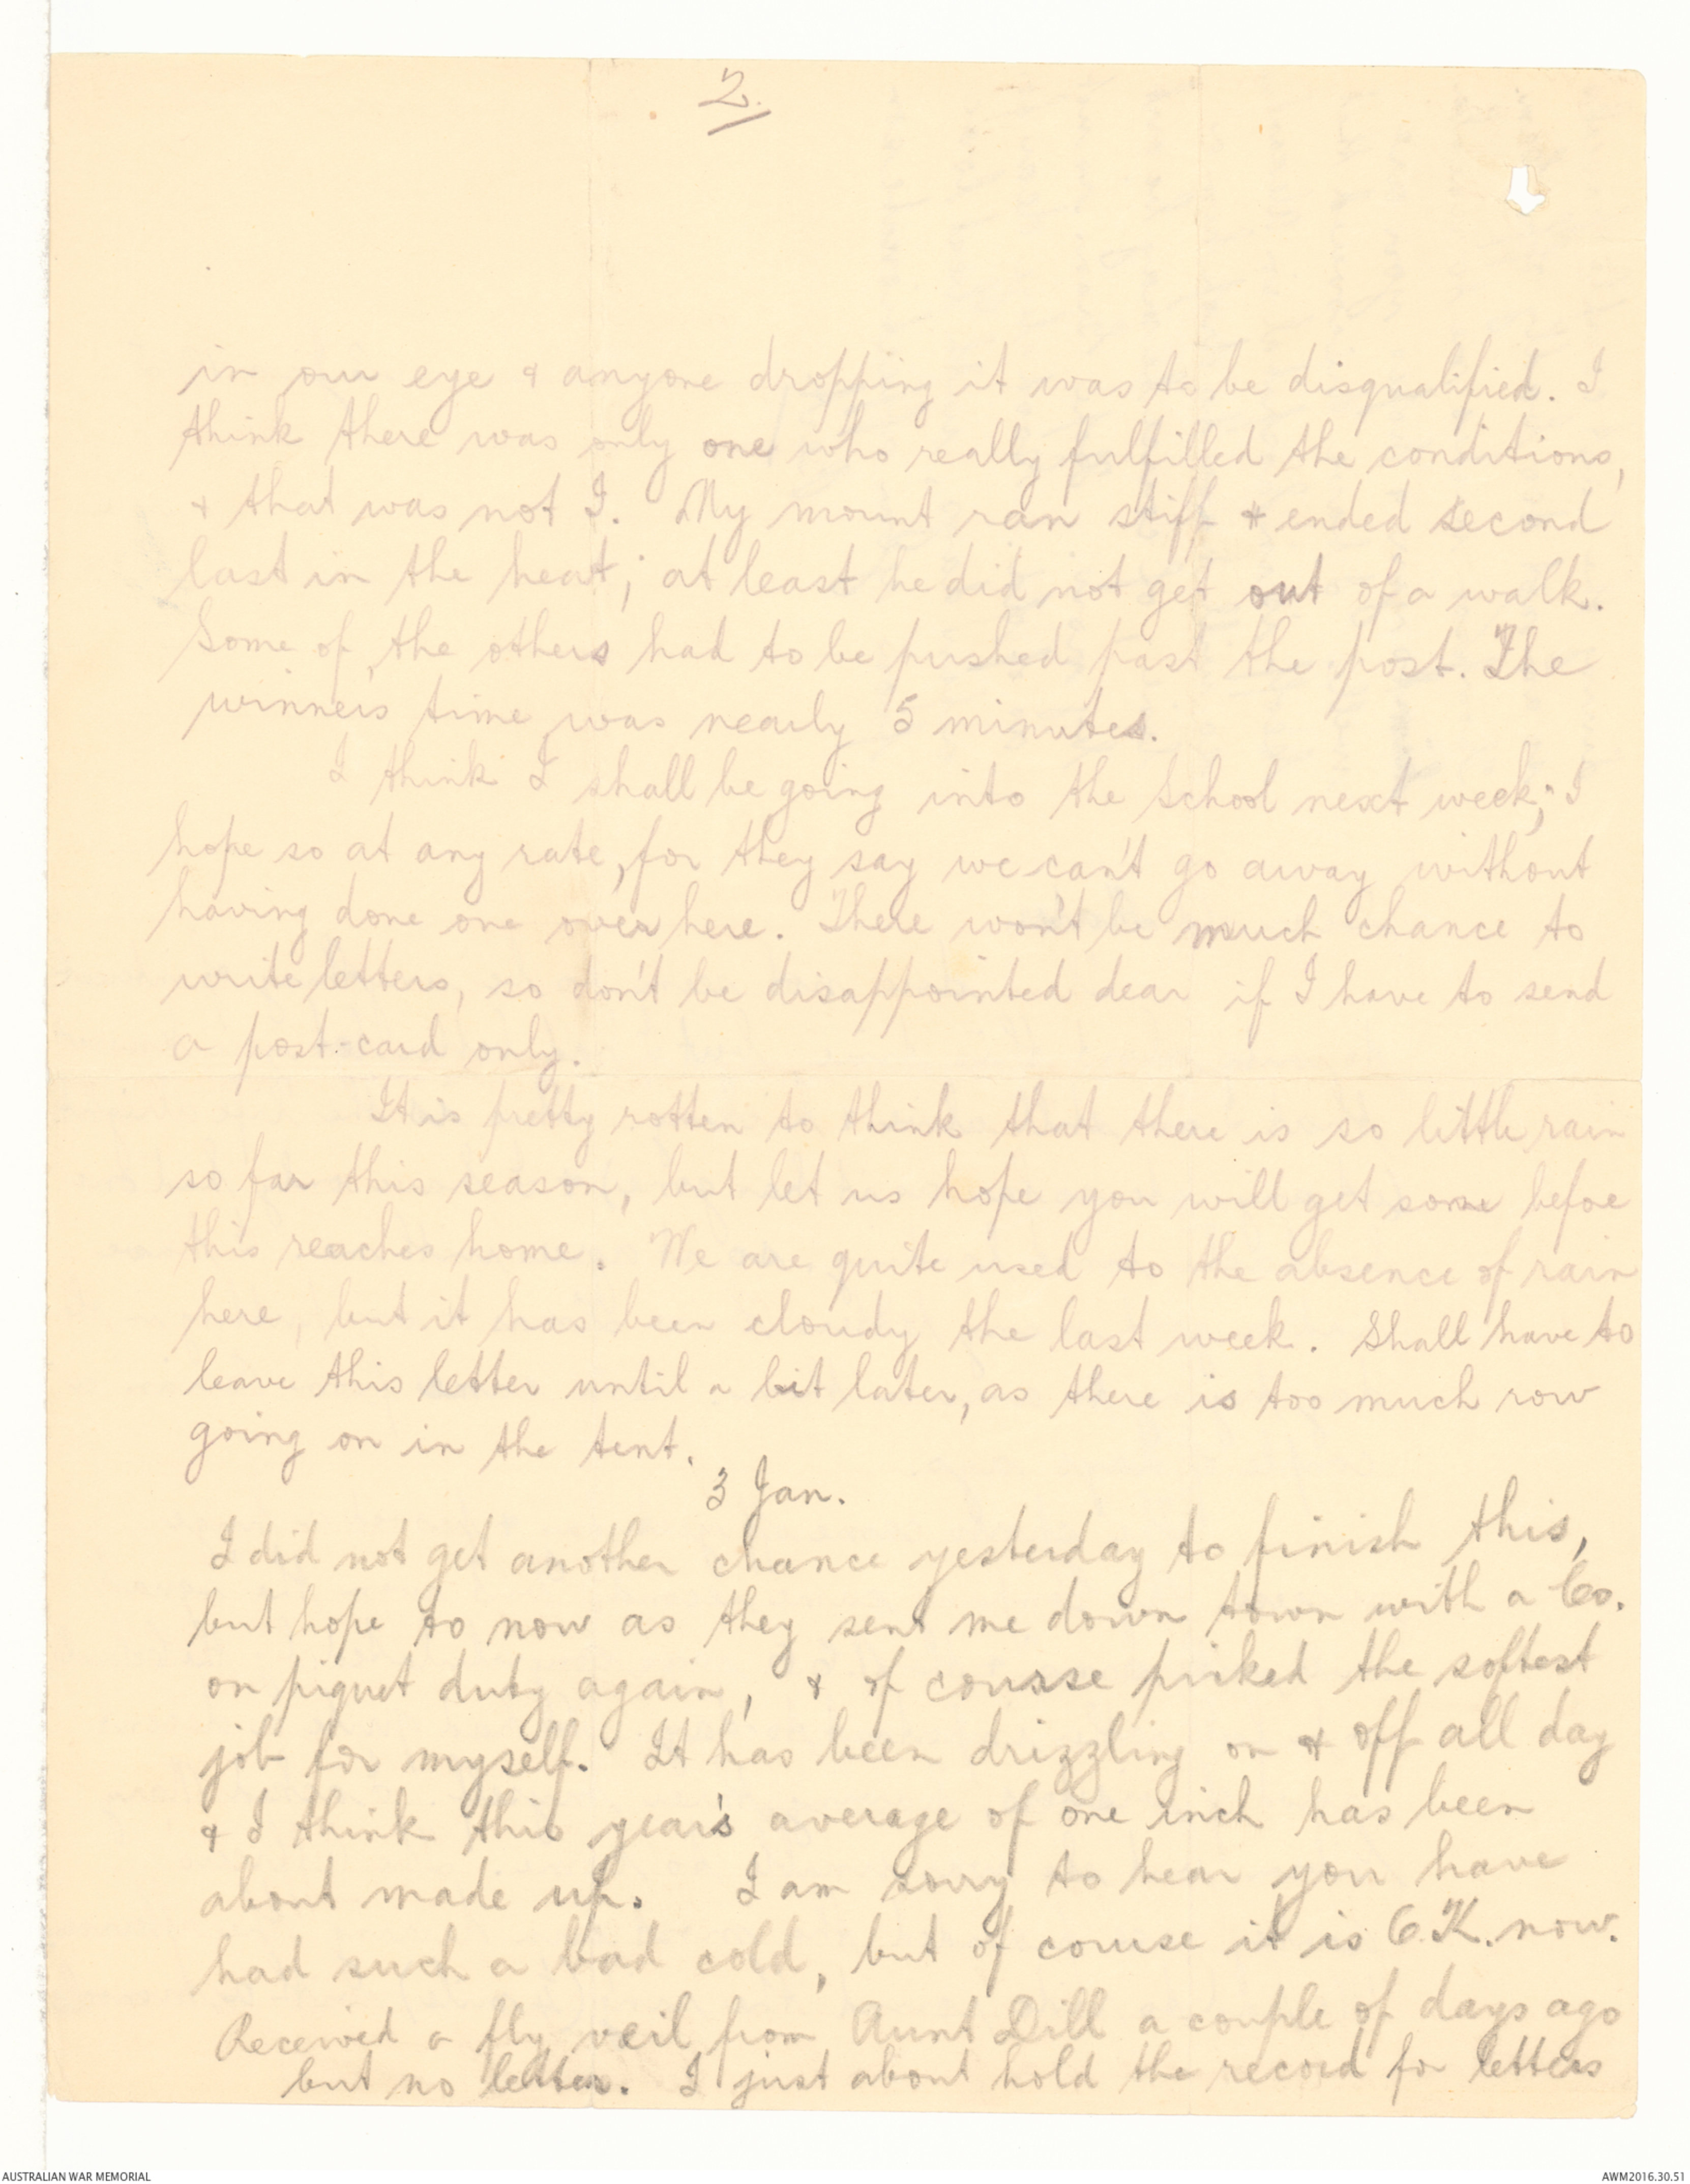 2.
in our eye & anyone dropping it was to be disqualified. I
think there was only one who really fulfilled the conditions,
& that was not I. My mount ran stiff & ended second
last in the heat; at least he did not get out of a walk.
Some of the others had to be pushed past the post. The
winners time was nearly 5 minutes.
I think I shall be going into the School next week; I
hope so at any rate, for they say we can't go away without
having done one over here. There won't be much chance to
write letters, so don't be disappointed dear if I have to send
a post-card only.
It is pretty rotten to think that there is so little rain
so far this season, but let us hope you will get some befoe
this reaches home. We are quite used to the absence of rain
here, but it has been cloudy the last week. Shall have to
leave this letter until a bit later, as there is too much row
going on in the tent.
3 Jan.
I did not get another chance yesterday to finish this,
but hope to now as they sent me down town with a Co.
on piquet duty again, & of course picked the softest
job for myself. It has been drizzling on & off all day
& I think this year's average of one inch has been
about made up. I am sorry to hear you have
had such a bad cold, but of course it is O.K. now.
Received a fly veil from Aunt Dill a couple of days ago
but no letter. I just about hold the record for letters
AUSTRALIAN WAR MEMORIAL
AWM2016.30.51